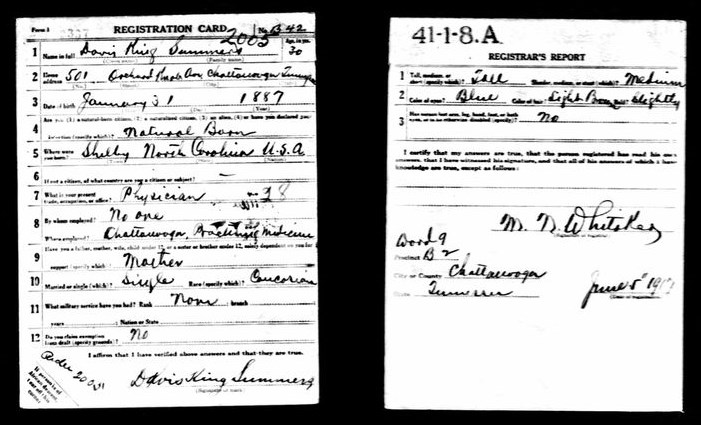 Form 1
REGISTRATION CARD
No. B 42
2005
1 Name in full Davis King Summers
(Given name) (Family name)
Age, in yrs. 30
2 Home address 501 Chattanooga
(No.) (Street) (City) (State)
3 Date of birth January 31 1887
(Month) (Day) (Year)
4 Are you (1) a natural-born citizen, (2) a naturalized citizen, (3) an alien, (4) or have you declared your
intention (specify which)? Natural Born
5 Where were you born? Shelby North Carolina U.S.A
6 If not a citizen, of what country are you a citizen or subject?
7 What is your present trade, occupation, or office? Physician
8 By whom employed? No one
Where employed? Chattanooga, Practicing Medicine
9 Have you a father, mother, wife, child under 12, or a sister or brother under 12, solely dependent on you for
support (specify which)? Mother
10 Married or single (which)? Single Race (specify which)? Caucasian
11 What military service have you had? Rank None branch
years Nation or State
12 Do you claim exemption from draft (specify grounds)? No
I affirm that I have verified above answers and that they are true.
Davis King Summers
If person is of African descent, tear off this corner
41-1-8.A
REGISTRAR'S REPORT
1 Tall, medium, or short (specify which)? Tall Slender, medium, or stout (which)? Medium
2 Color of eyes? Blue Color of hair? Light Brown Bald? Slightly
3 Has person lost arm, leg, hand, foot, or both eyes, or is he otherwise disabled (specify)? No
I certify that my answers are true, that the person registered has read his own
answers, that I have witnessed his signature, and that all of his answers of which I have
knowledge are true, except as follows:
M. N. Whitaker
(Signature of registrar)
Ward 9
Precinct B 2
City or County Chattanooga
State Tennessee
June 5" 1917
(Date of registration)